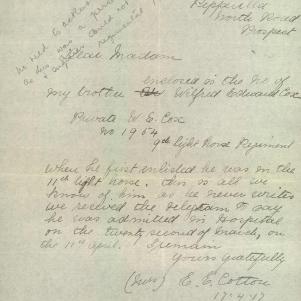 North Road
Prospect
Dear Madam
enclosed is the No of
my brother Wilfred Edward Cox
Private W E Cox
No 1964
9th light Horse Regiment
When he first enlisted he was in the
11th light horse. this is all we
know of him as he never writes
we received the telegram to say
he was admitted in Hospital
on the twenty second of March, on
the 11th April. I remain
Yours gratefully
(Mrs) E. E. Cotton
17.4.17